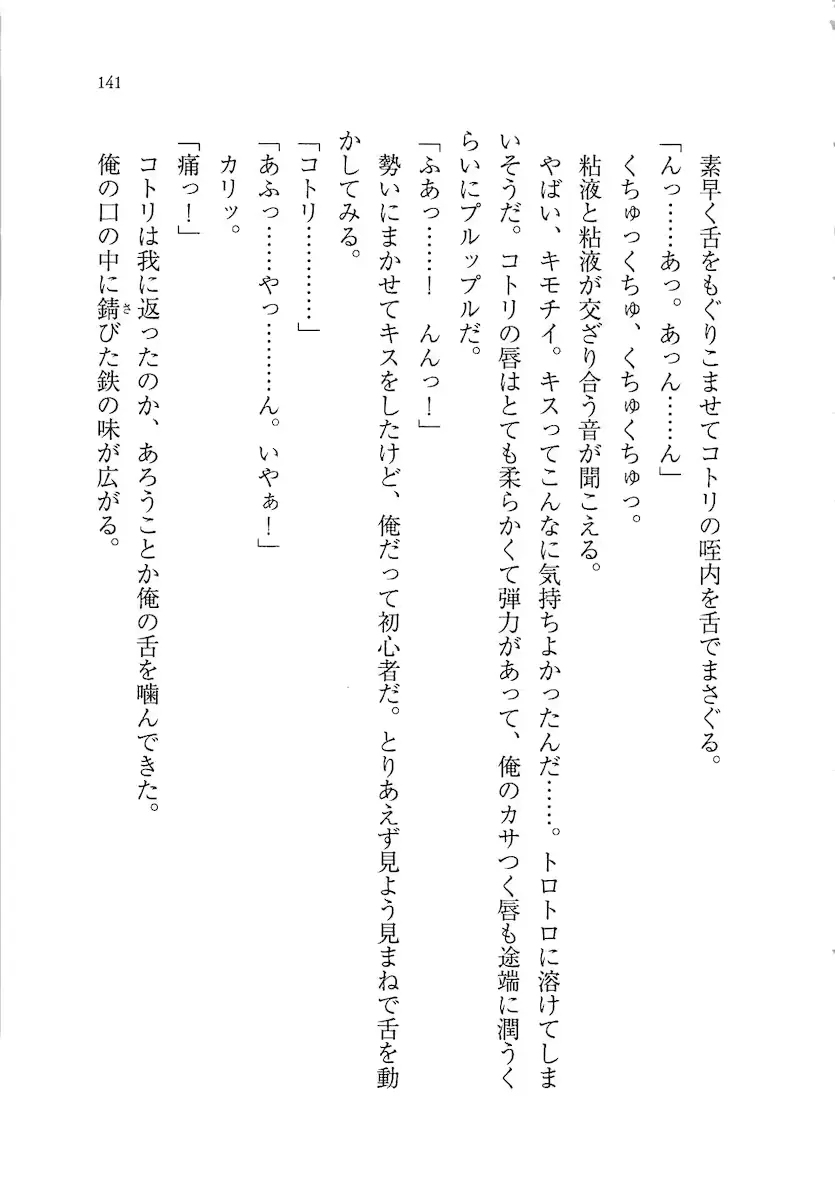 141
素早く舌をもぐりこませてコトリの咥内を舌でまさぐる。
「んっ……あっ。あっん……ん」
くちゅっくちゅ、くちゅくちゅっ。
粘液と粘液が交ざり合う音が聞こえる。
やばい、キモチイ。キスってこんなに気持ちよかったんだ……。トロトロに溶けてしま
いそうだ。コトリの唇はとても柔らかくて弾力があって、俺のカサつく唇も途端に潤うく
らいにプルップルだ。
「ふあっ……！　んんっ！」
勢いにまかせてキスをしたけど、俺だって初心者だ。とりあえず見よう見まねで舌を動
かしてみる。
「コトリ…………」
「あふっ……やっ………ん。いやぁ！」
カリッ。
「痛っ！」
コトリは我に返ったのか、あろうことか俺の舌を噛んできた。
俺の口の中に錆びた鉄の味が広がる。